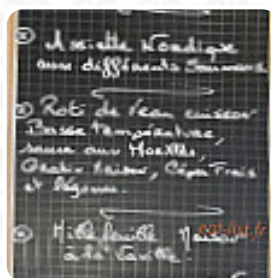 Assiette Nordique
aux différents Saumons
Roti de Veau cuisson
Basse température,
sauce aux Morilles,
Gratin Maison, Cèpes Frais
et légumes.
Mille feuille Maison
à la Vanille.